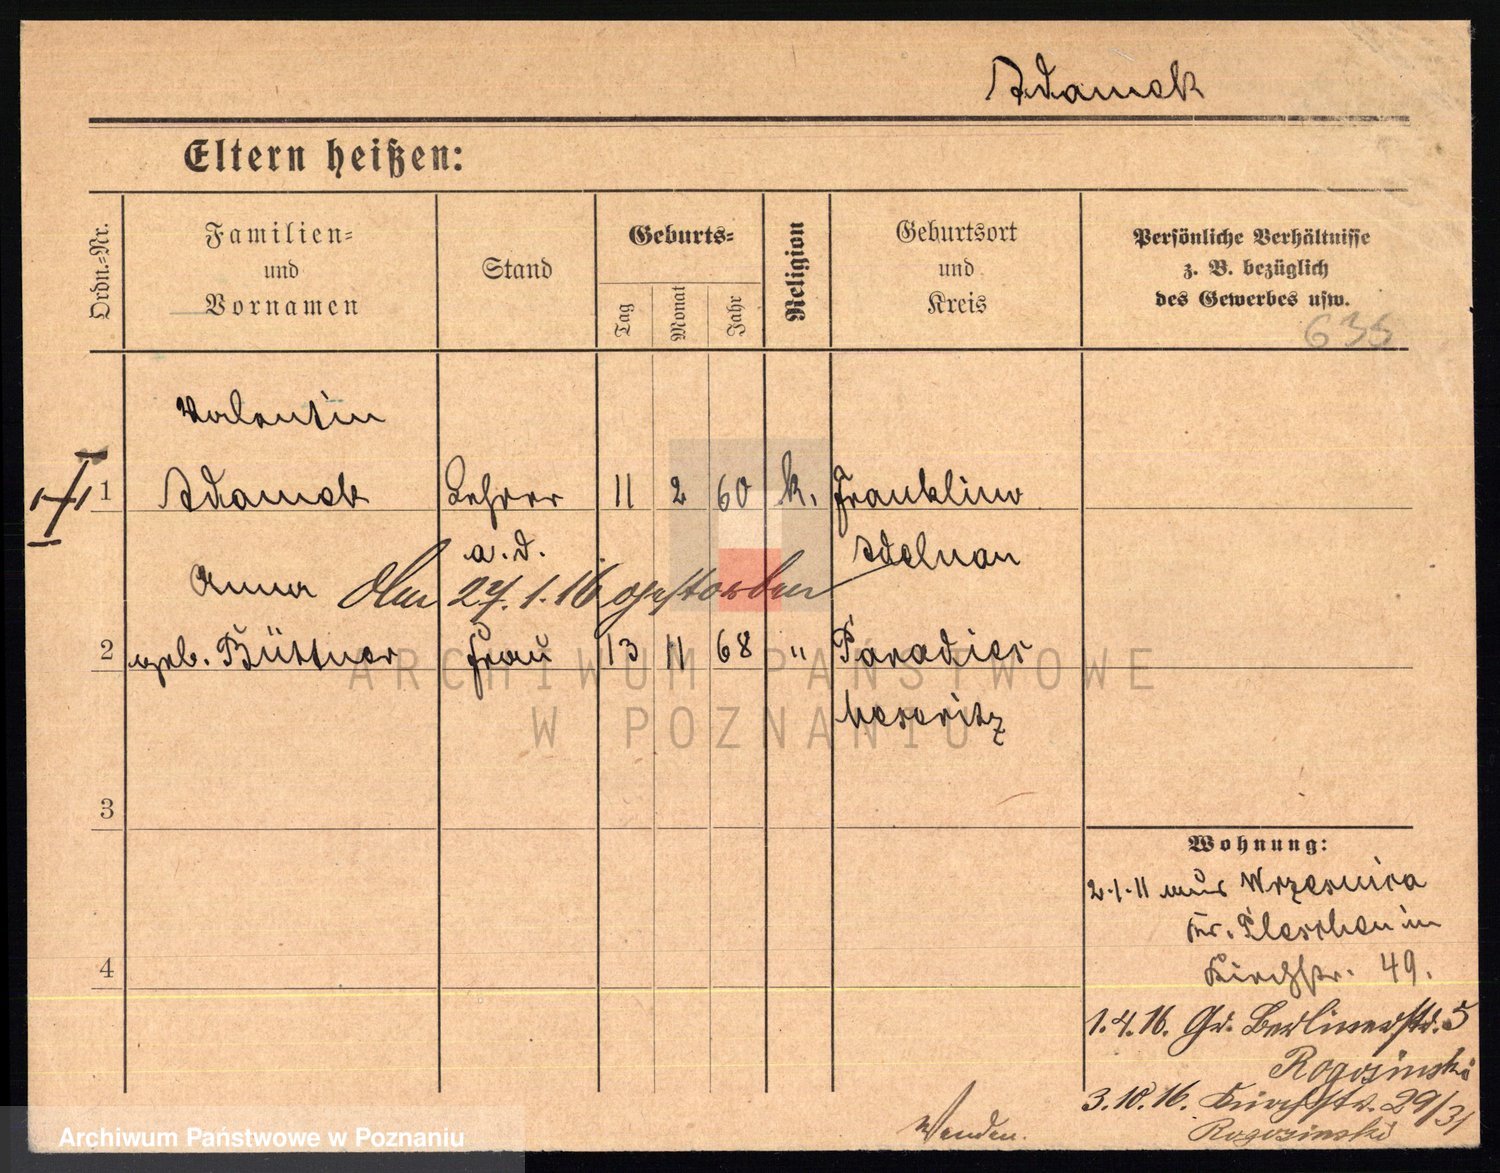 Adamek
Eltern heißen:
Ordn.-Nr.
Familien-
und
Vornamen
Stand
Geburts-
Tag
Monat
Jahr
Religion
Geburtsort
und
Kreis
Persönliche Verhältnisse
z. B. bezüglich
des Gewerbes usw.
635
Valentin
1 Adamek Lehrer 11 2 60 k. Franklinow
a. d. Adelnau
Anna Am 27.1.16 gestorben
2 geb. Büttner Frau 13 11 68 " Paradies
Meseritz
3
4
Wohnung:
2.1.11 aus Wrzesnica
Kr. Pleschen in
Kirchstr. 49.
1.4.16. Gr. Berlinerstr. 5
Rogosinski
3.10.16. Kirchstr. 29/31
Rogozinski
Wenden.
ARCHIWUM PAŃSTWOWE
W POZNANIU
Archiwum Państwowe w Poznaniu